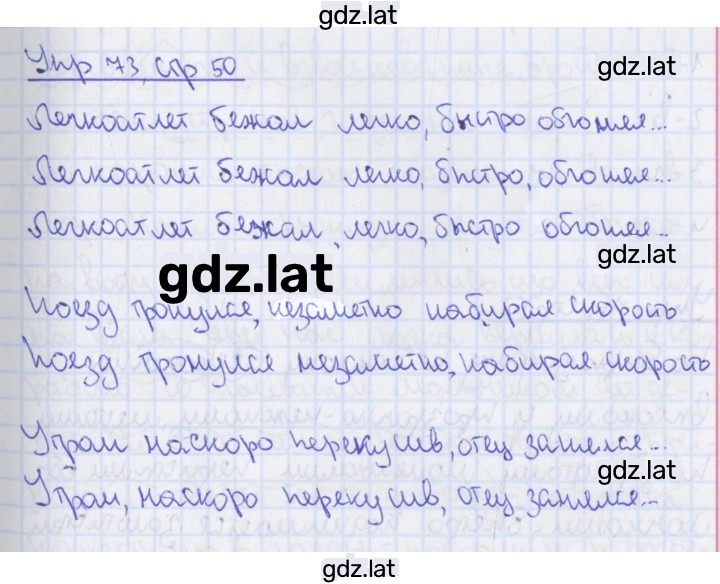 gdz.lat
Упр 73, стр 50
gdz.lat
Легкоатлет бежал легко, быстро обгоняя...
Легкоатлет бежал легко, быстро, обгоняя...
Легкоатлет бежал, легко, быстро обгоняя...
gdz.lat
gdz.lat
Поезд тронулся, незаметно набирая скорость
Поезд тронулся незаметно, набирая скорость
Утром наскоро перекусив, отец занялся...
gdz.lat
Утром, наскоро перекусив, отец занялся...
gdz.lat